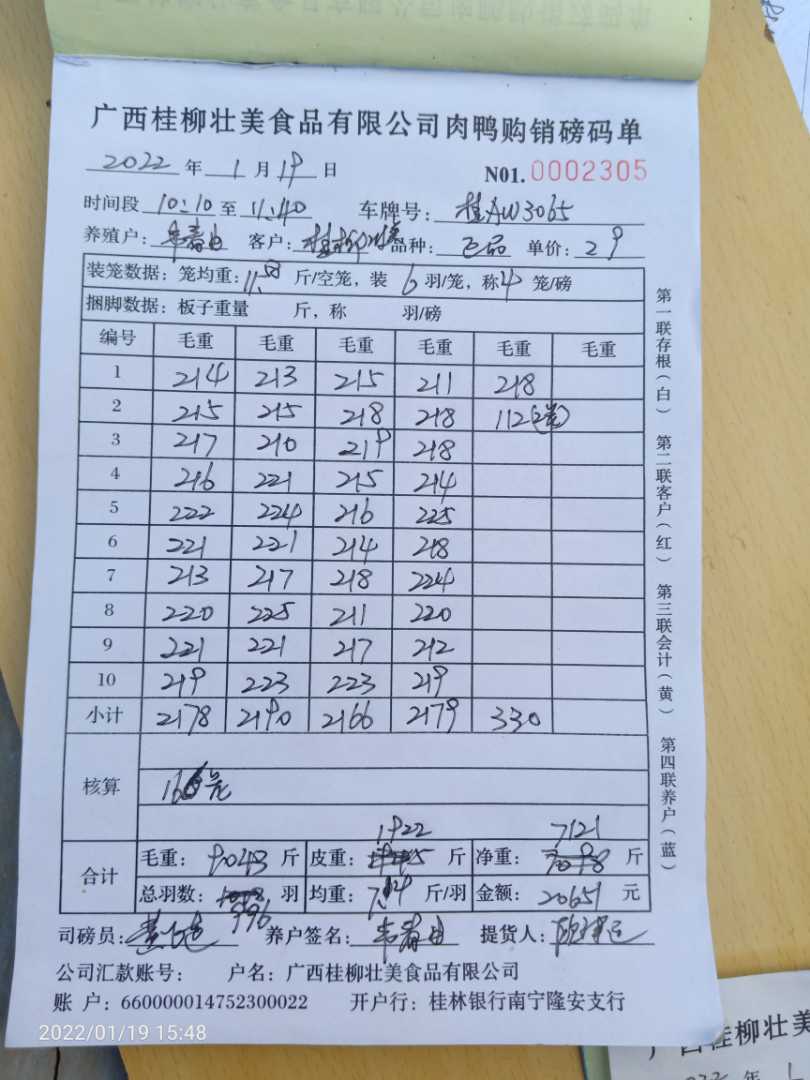 广西桂柳壮美食品有限公司肉鸭购销磅码单
2022 年 1 月 19 日 N01. 0002305
时间段 10:10 至 11:40 车牌号: 桂AW3065
养殖户: 韦春由 客户: 品种: 正品 单价: 29
装笼数据: 笼均重: 11.58 斤/空笼, 装 6 羽/笼, 称 4 笼/磅
捆脚数据: 板子重量 斤, 称 羽/磅
编号 毛重 毛重 毛重 毛重 毛重 毛重
1 214 213 215 211 218
2 215 215 218 218 112(2笼)
3 217 210 219 218
4 216 221 215 214
5 222 224 216 225
6 221 221 214 218
7 213 217 218 224
8 220 225 211 220
9 221 221 217 212
10 219 223 223 219
小计 2178 2190 2166 2179 330
核算 166笼
1922 7121
合计 毛重: 9043 斤 皮重: 斤 净重: 斤
总羽数: 996 羽 均重: 7.14 斤/羽 金额: 20651 元
司磅员: 养户签名: 韦春由 提货人:
公司汇款账号: 户名: 广西桂柳壮美食品有限公司
账 户: 660000014752300022 开户行: 桂林银行南宁隆安支行
第一联存根(白) 第二联客户(红) 第三联会计(黄) 第四联养户(蓝)
2022/01/19 15:48
桂柳壮美